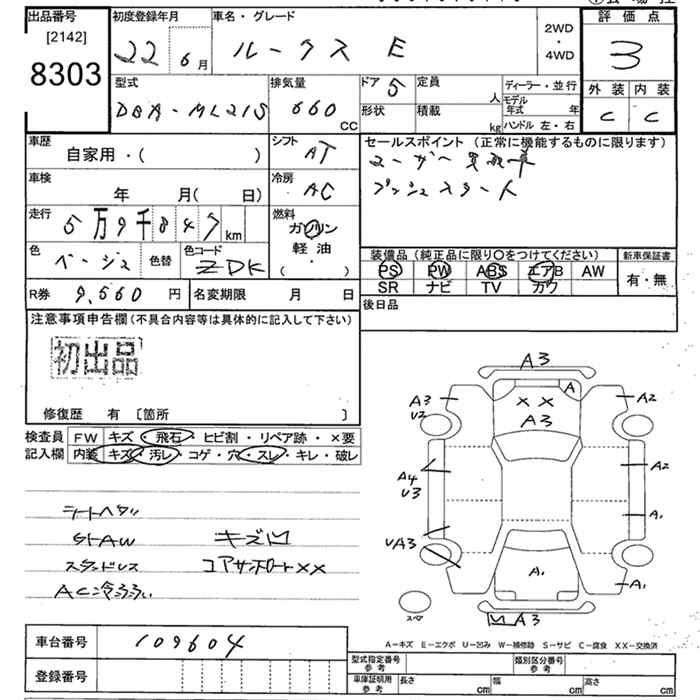 出品番号
[2142]
8303
初度登録年月
22 6月
車名・グレード
ルークス E
2WD
・
4WD
評価点
3
外装 内装
C C
型式
DBA-ML21S
排気量
660
CC
ドア 5
形状
定員
人
積載
kg
ディーラー・並行
モデル年式 年
ハンドル 左・右
車歴
自家用・( )
シフト
AT
セールスポイント (正常に機能するものに限ります)
ユーザー買取車
プッシュスタート
車検
年 月( 日)
冷房
AC
走行
5万9千847km
燃料
ガソリン
軽油
・
( )
色
ベージュ
色替
色コード
ZDK
装備品 (純正品に限り〇をつけてください)
PS PW ABS エアB AW
SR ナビ TV カワ
新車保証書
有・無
R券 9,560円
名変期限 月 日
後日品
注意事項申告欄 (不具合内容等は具体的に記入して下さい)
初出品
修復歴 有 〔箇所 〕
検査員
記入欄
FW キズ・飛石・ヒビ割・リペア跡・×要
内装 キズ・汚レ・コゲ・穴・スレ・キレ・破レ
シートヘタリ
StAW キズ凹
スタンドレス コアサポート××
A3
A
A3
U2
××
A3
A2
A4
U3
A2
UA3
A1
A1
A1
スペア
A3
A-キズ E-エクボ U-凹み W-補修跡 S-サビ C-腐食 XX-交換済
車台番号 109604
登録番号
型式指定番号
参考
類別区分番号
参考
車庫証明用
参考
長さ cm
幅 cm
高さ cm